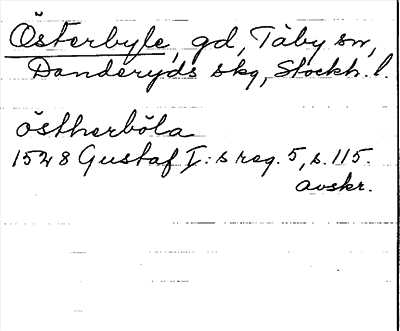 Österbyle, gd, Täby sn,
Danderyds skg, Stockh. l.
östherböla
1528 Gustaf I:s reg. 5, s. 115.
avskr.